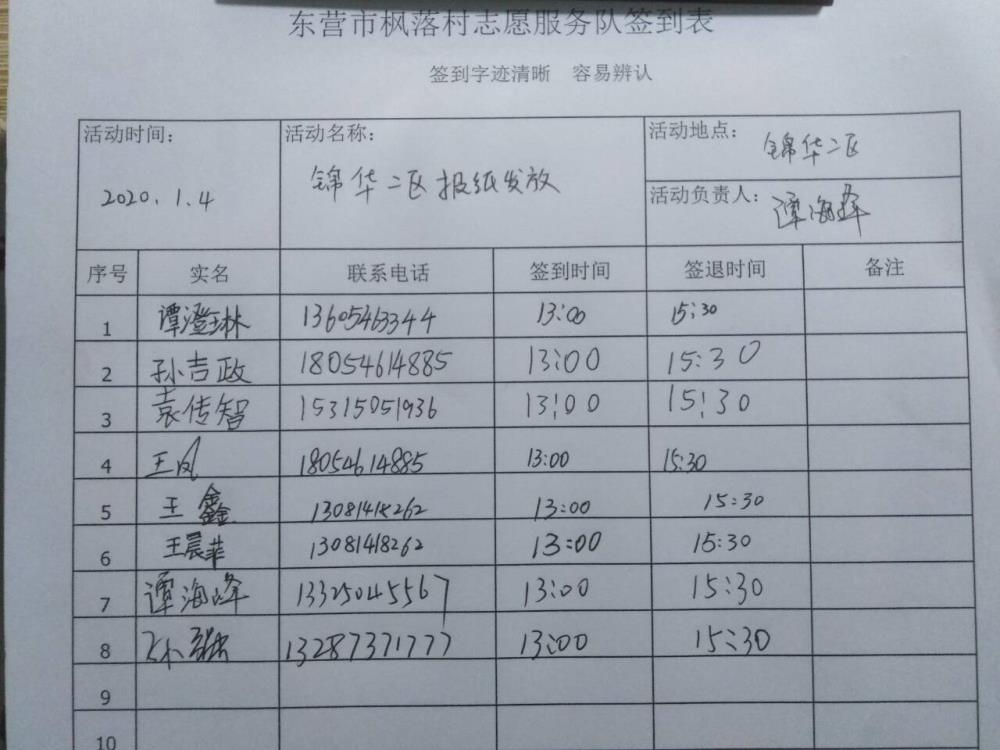 东营市枫落村志愿服务队签到表
签到字迹清晰 容易辨认
活动时间: 活动名称: 活动地点: 锦华二区
2020.1.4 锦华二区报纸发放
活动负责人: 谭海峰
序号 实名 联系电话 签到时间 签退时间 备注
1 谭澄琳 13605463344 13:00 15:30
2 孙吉政 18054614885 13:00 15:30
3 袁传智 15315051936 13:00 15:30
4 王凤 18054614885 13:00 15:30
5 王鑫 13081418262 13:00 15:30
6 王晨菲 13081418262 13:00 15:30
7 谭海峰 13325045567 13:00 15:30
8 孙 13287371777 13:00 15:30
9
10